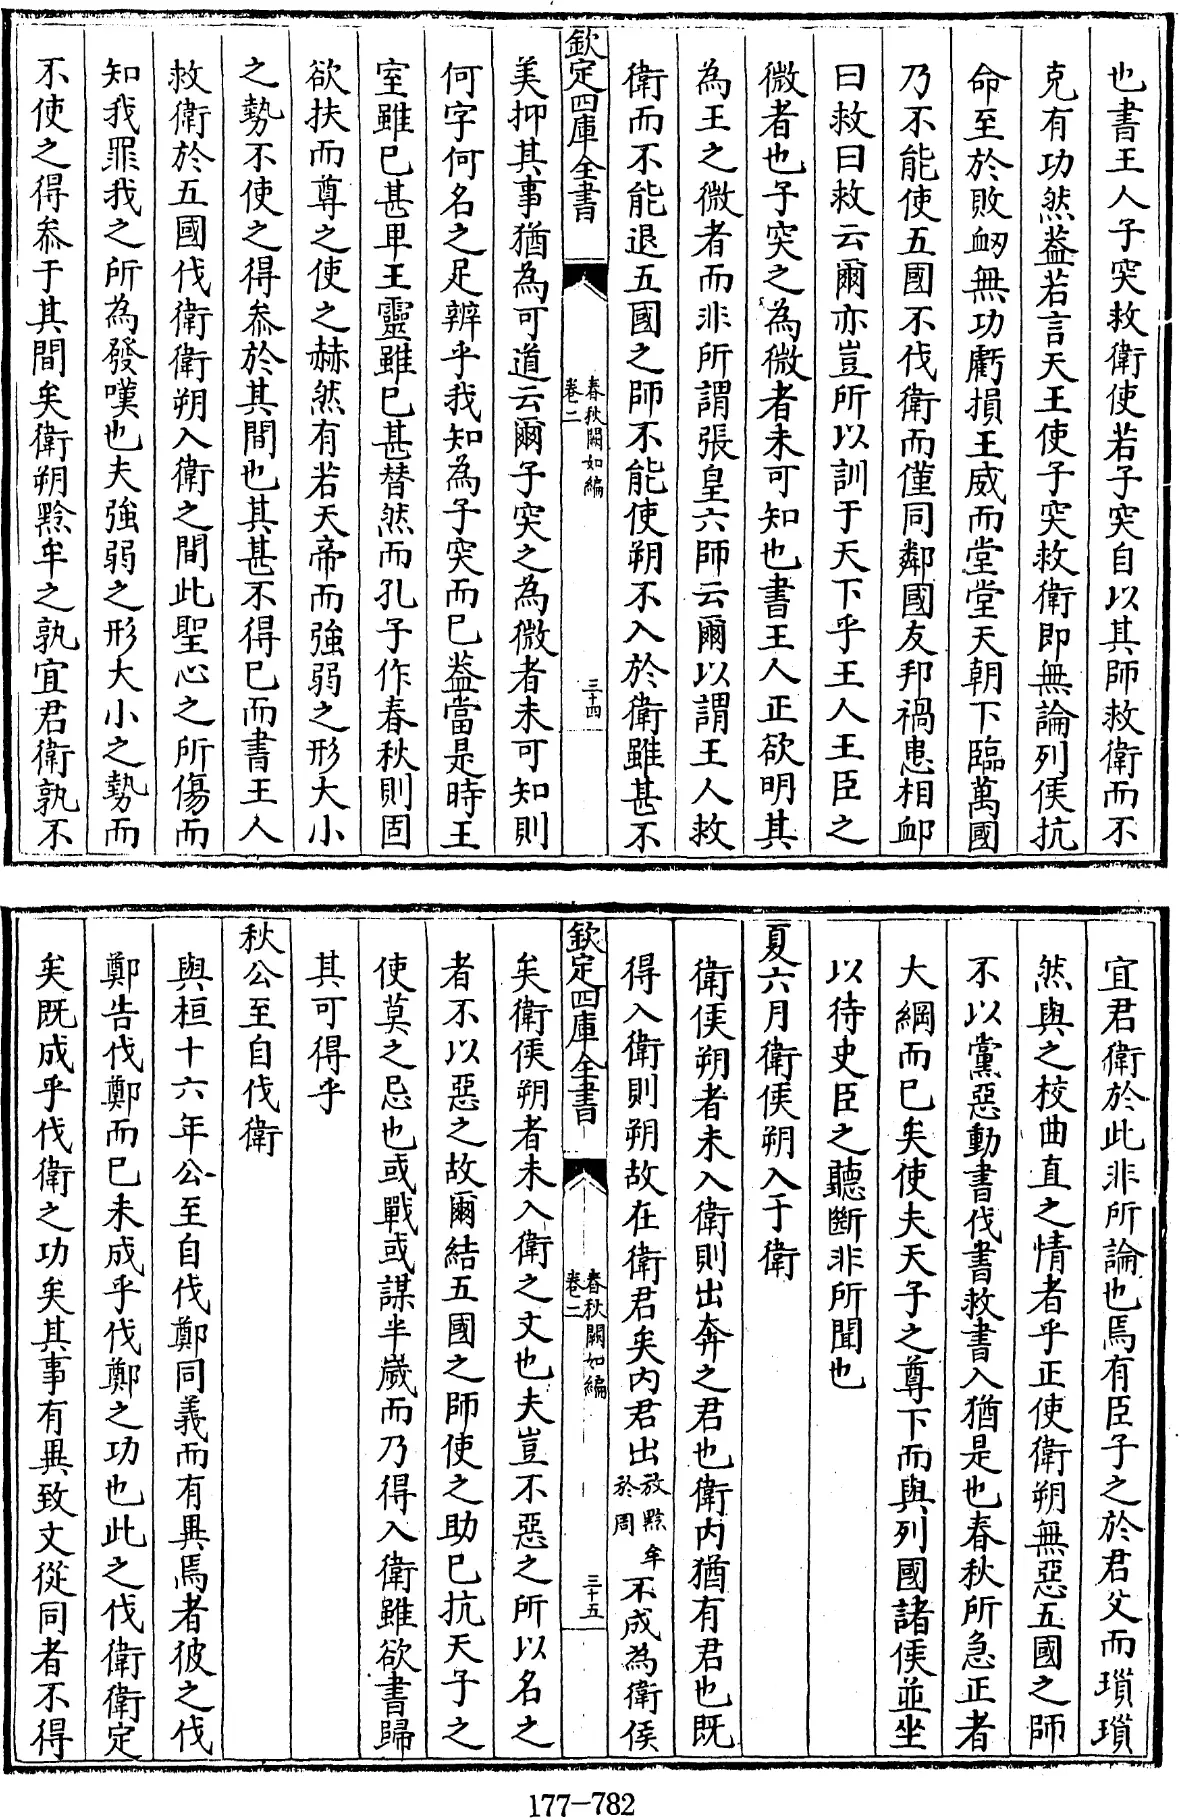 也書王人子突救衛使若子突自以其師救衛而不
克有功然葢若言天王使子突救衛即無論列侯抗
命至於敗衂無功虧損王威而堂堂天朝下臨萬國
乃不能使五國不伐衛而僅同鄰國友邦禍患相䘏
曰救曰救云爾亦豈所以訓于天下乎王人王臣之
微者也子突之為微者未可知也書王人正欲明其
為王之微者而非所謂張皇六師云爾以謂王人救
衛而不能退五國之師不能使朔不入於衛雖甚不
欽定四庫全書
春秋闕如編
卷二
三十四
美抑其事猶為可道云爾子突之為微者未可知則
何字何名之足辨乎我知為子突而已葢當是時王
室雖已甚卑王靈雖已甚替然而孔子作春秋則固
欲扶而尊之使之赫然有若天帝而強弱之形大小
之勢不使之得叅於其間也其甚不得已而書王人
救衛於五國伐衛衛朔入衛之間此聖心之所傷而
知我罪我之所為發嘆也夫強弱之形大小之勢而
不使之得叅于其間矣衛朔黔牟之孰宜君衛孰不
宜君衛於此非所論也焉有臣子之於君父而瑣瑣
然與之校曲直之情者乎正使衛朔無惡五國之師
不以黨惡動書伐書救書入猶是也春秋所急正者
大綱而已矣使夫天子之尊下而與列國諸侯並坐
以待史臣之聽斷非所聞也
夏六月衛侯朔入于衛
衛侯朔者未入衛則出奔之君也衛内猶有君也既
得入衛則朔故在衛君矣内君出放黔牟於周不成為衛侯
欽定四庫全書
春秋闕如編
卷二
三十五
矣衛侯朔者未入衛之文也夫豈不惡之所以名之
者不以惡之故爾結五國之師使之助已抗天子之
使莫之忌也或戰或謀半嵗而乃得入衛雖欲書歸
其可得乎
秋公至自伐衛
與桓十六年公至自伐鄭同義而有異焉者彼之伐
鄭告伐鄭而已未成乎伐鄭之功也此之伐衛衛定
矣既成乎伐衛之功矣其事有異致文從同者不得
177-782